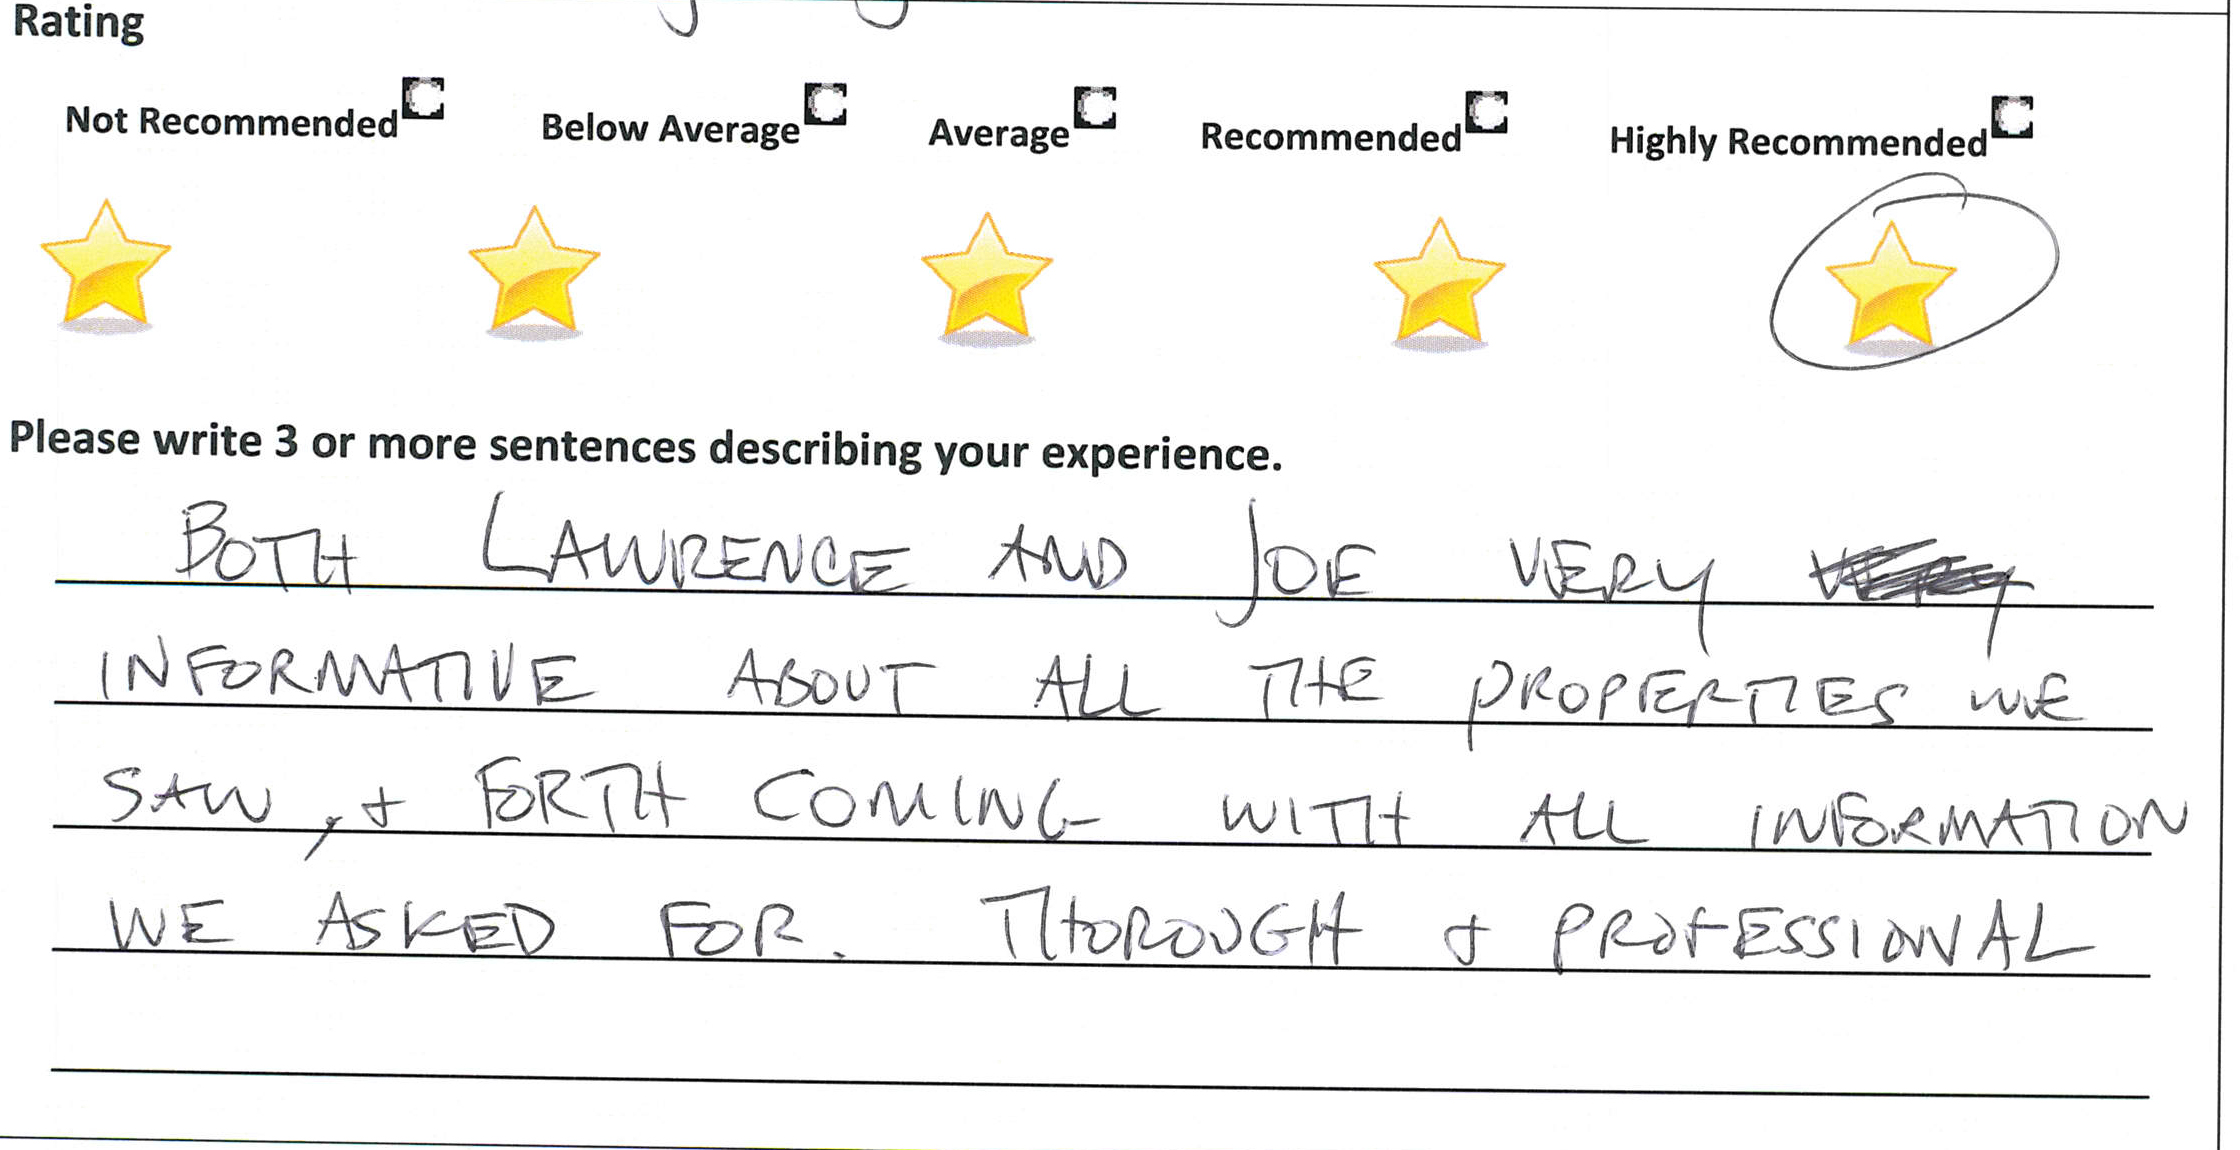 Rating
Not Recommended Below Average Average Recommended Highly Recommended
Please write 3 or more sentences describing your experience.
BOTH LAWRENCE AND JOE VERY
INFORMATIVE ABOUT ALL THE PROPERTIES WE
SAW, + FORTH COMING WITH ALL INFORMATION
WE ASKED FOR. THOROUGH + PROFESSIONAL